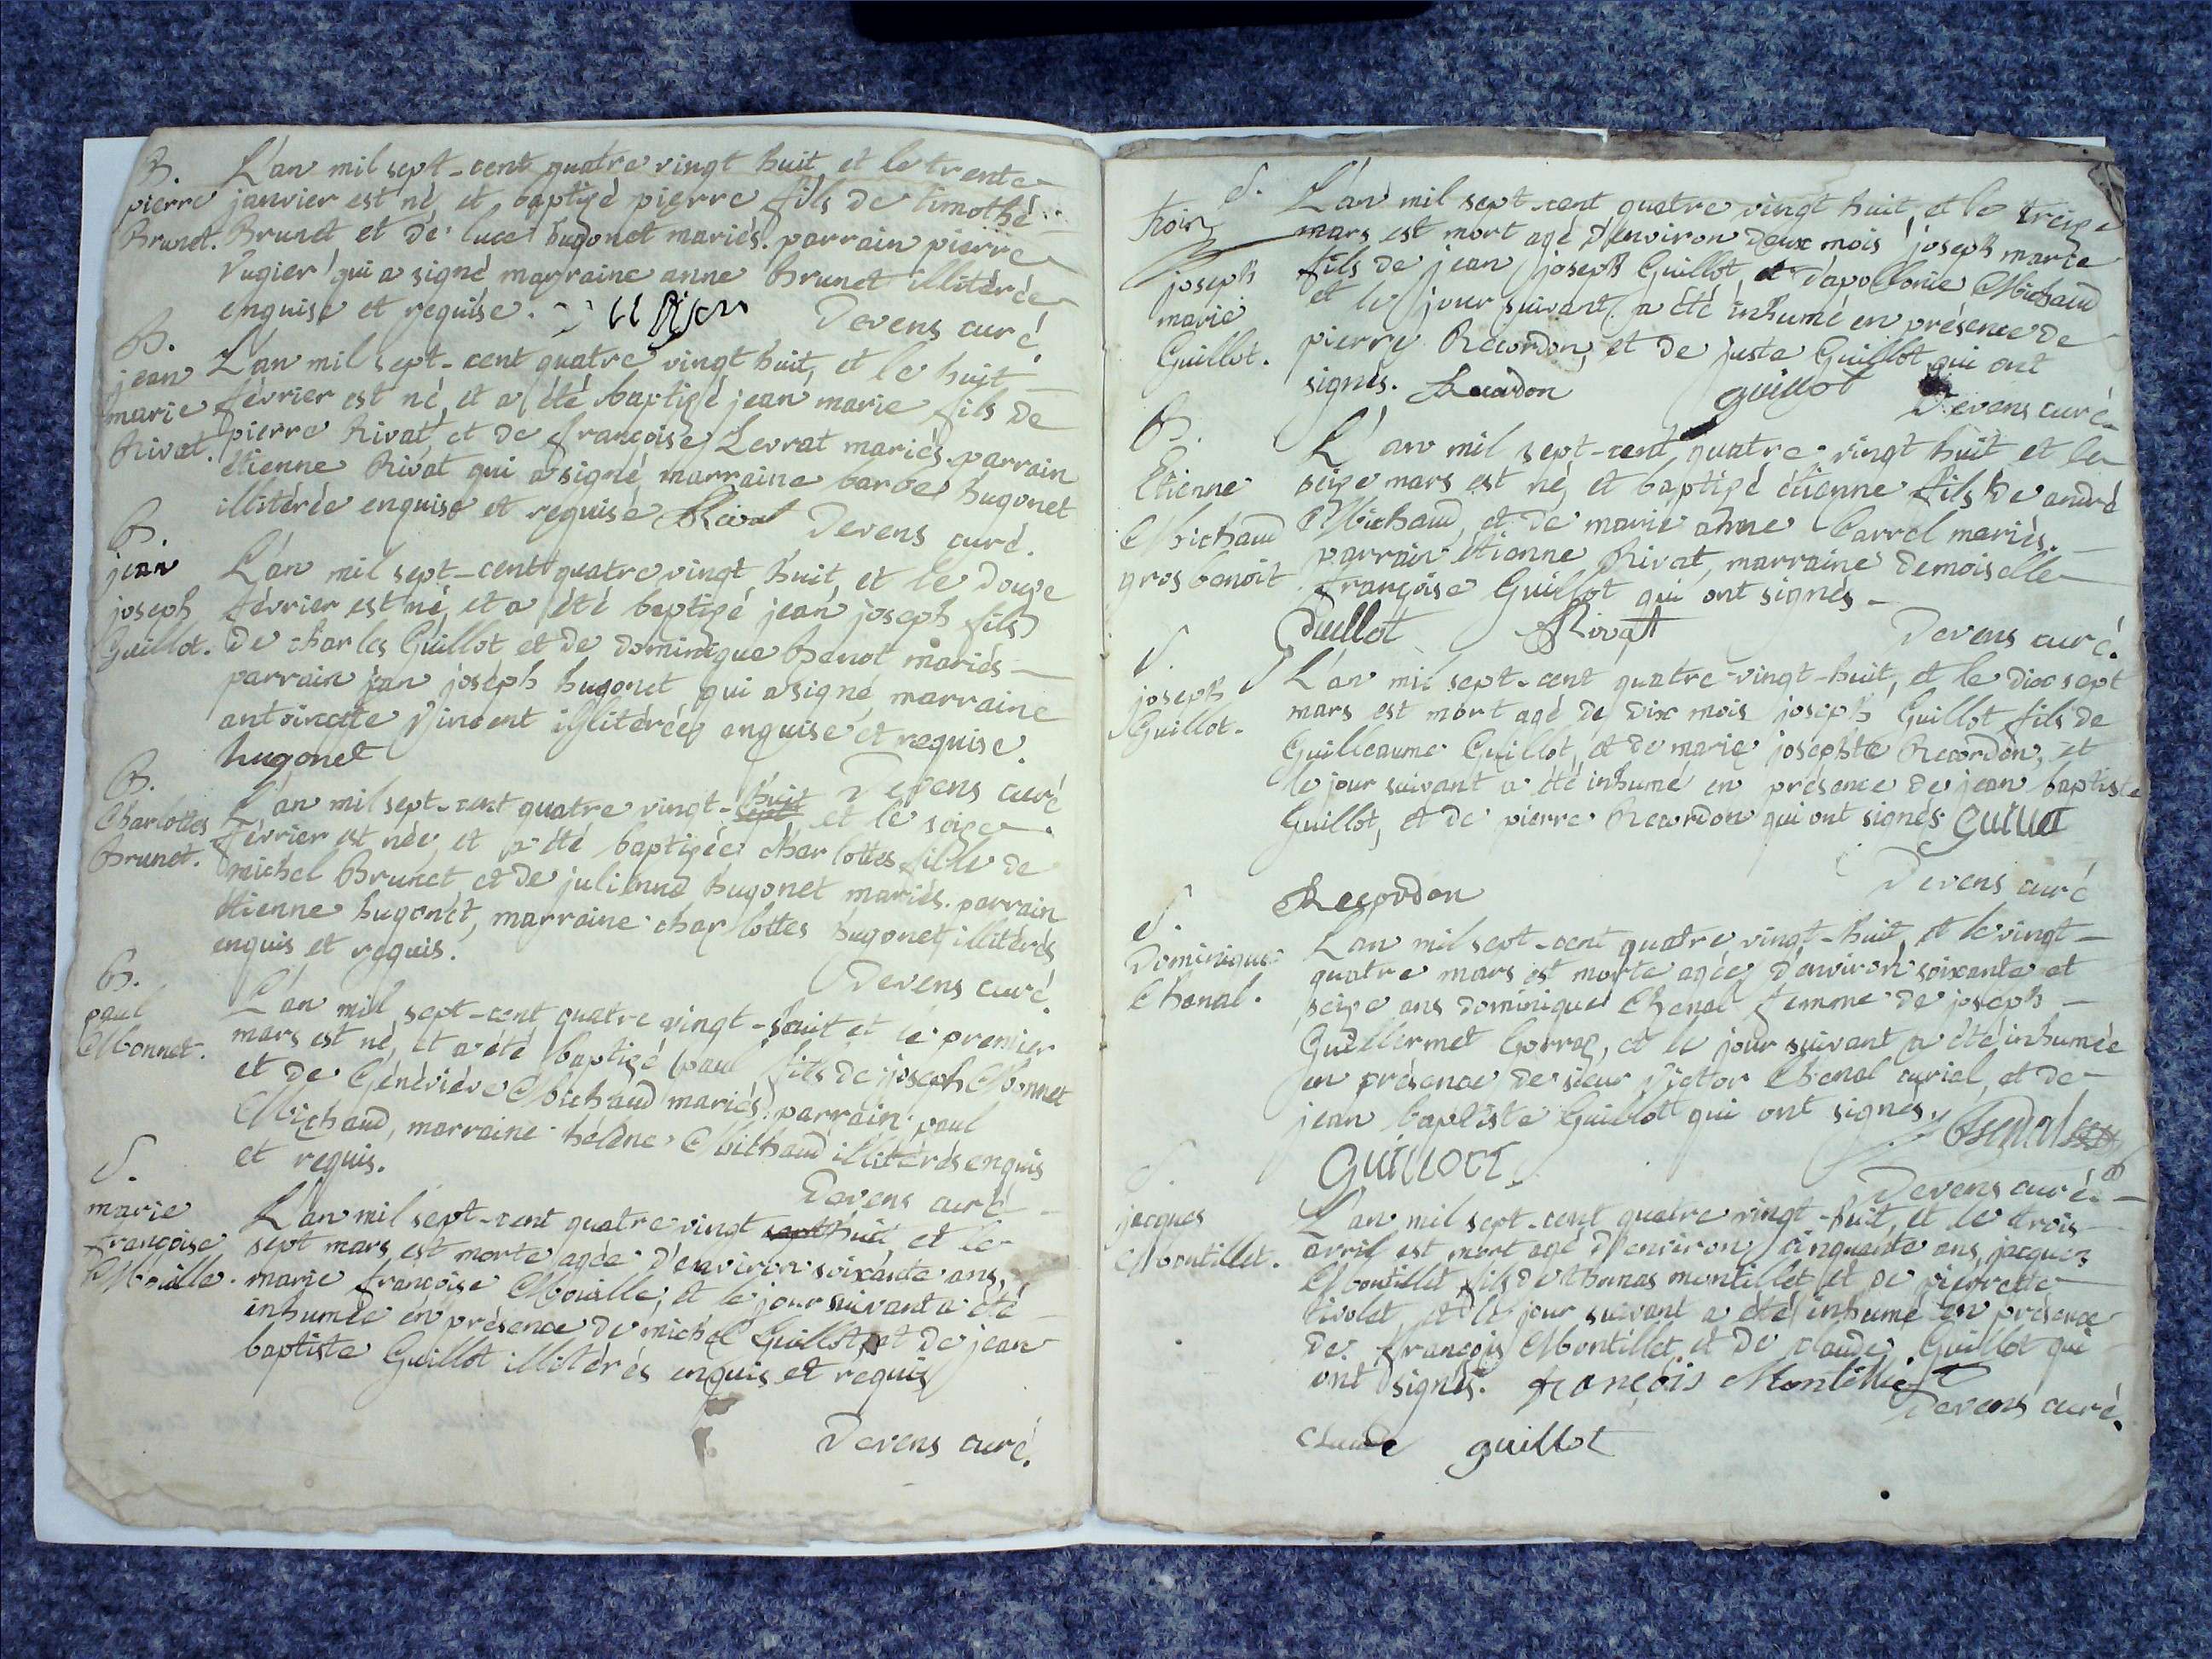 B.
pierre
Brunet.
L'an mil sept-cent quatre vingt huit et le trente
janvier est né et baptizé pierre fils de timothé
Brunet et de luce hugonet mariés. parrain pierre
Vugier qui a signé marraine anne Brunet illitérée
enquise et requise.
Devens curé.
B.
jean
marie
Rivat.
L'an mil sept-cent quatre vingt huit, et le huit
février est né, et a été baptizé jean marie fils de
pierre Rivat, et de françoise Levrat mariés. parrain
étienne Rivat qui a signé, marraine barbe hugonet
illitérée enquise et requise Rivat Devens curé.
B.
jean
joseph
Guillot.
L'an mil sept-cent quatre vingt huit, et le douze
février est né, et a été baptizé jean joseph fils
de charles Guillot et de dominique Benot mariés
parrain jean joseph hugonet qui a signé, marraine
antoinette Vincent illitérée enquise et requise.
hugonet
Devens curé
B.
Charlottes
Brunet.
L'an mil sept-cent quatre vingt-sept huit et le seize
février est née, et a été baptizée charlottes fille de
michel Brunet, et de julienne hugonet mariés. parrain
étienne hugonet, marraine charlottes hugonet illitérés
enquis et requis.
Devens curé.
B.
paul
Monnet.
L'an mil sept-cent quatre vingt-huit et le premier
mars est né, et a été baptizé paul fils de joseph Monnet
et de Généviéve Michaud mariés. parrain paul
Michaud, marraine héléne Michaud illitérés enquis
et requis.
Devens curé
S.
marie
françoise
Moille.
L'an mil sept-cent quatre vingt sept huit et le
sept mars, est morte agée d'environ soixante ans,
marie françoise Moille, et le jour suivant a été
inhumée en présence de michel Guillot, et de jean
baptiste Guillot illitérés enquis et requis
Devens curé.
S.
joseph
marie
Guillot.
L'an mil sept-cent quatre vingt huit, et le treize
mars est mort agé d'environ deux mois joseph marie
fils de jean joseph Guillot, et d'apollonie Michaud
et le jour suivant a été inhumé en présence de
pierre Recordon, et de juste Guillot qui ont
signés. Recordon guillot
Devens curé
B.
Etienne
Michaud
gros benoit
L'an mil sept-cent quatre vingt huit et le
seize mars est né, et baptizé étienne fils de andré
Michaud, et de marie anne Carrel mariés.
parrain étienne Rivat, marraine demoiselle
françoise Guillot qui ont signés
Guillot Rivat Devens curé.
S.
joseph
Guillot.
L'an mil sept-cent quatre-vingt-huit, et le dix sept
mars est mort agé de dix mois joseph Guillot fils de
Guilleaume Guillot, et de marie josephte Recordon, et
le jour suivant a été inhumé en présence de jean baptiste
Guillot, et de pierre Recordon qui ont signés Guillot
Devens curé
Recordon
S.
Dominique
Chenal.
L'an mil sept-cent quatre vingt-huit, et le vingt
quatre mars est morte agée d'environ soixante et
seize ans dominique Chenal femme de joseph
Guillermet Corraz, et le jour suivant a été inhumée
en présence de sieur Victor Chenal curial, et de
jean baptiste Guillot qui ont signés, Chenal
GUILLOT
Devens curé
S.
jacques
Montillet.
L'an mil sept-cent quatre vingt-huit, et le trois
avril est mort agé d'environ cinquante ans, jacques
Montillet fils de thomas montillet et de pierrette
tivolet, et le jour suivant a été inhumé en présence
de françois Montillet, et de claude Guillot qui
ont signés. françois Montillet
Devens curé.
claude guillot